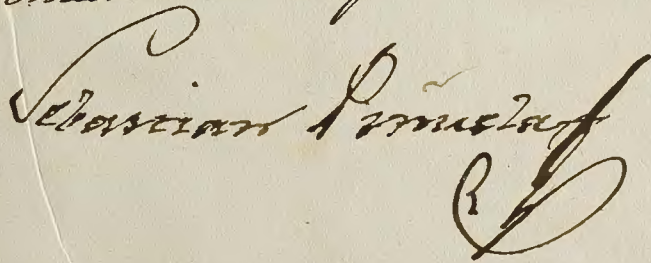 Sebastian Piñuela